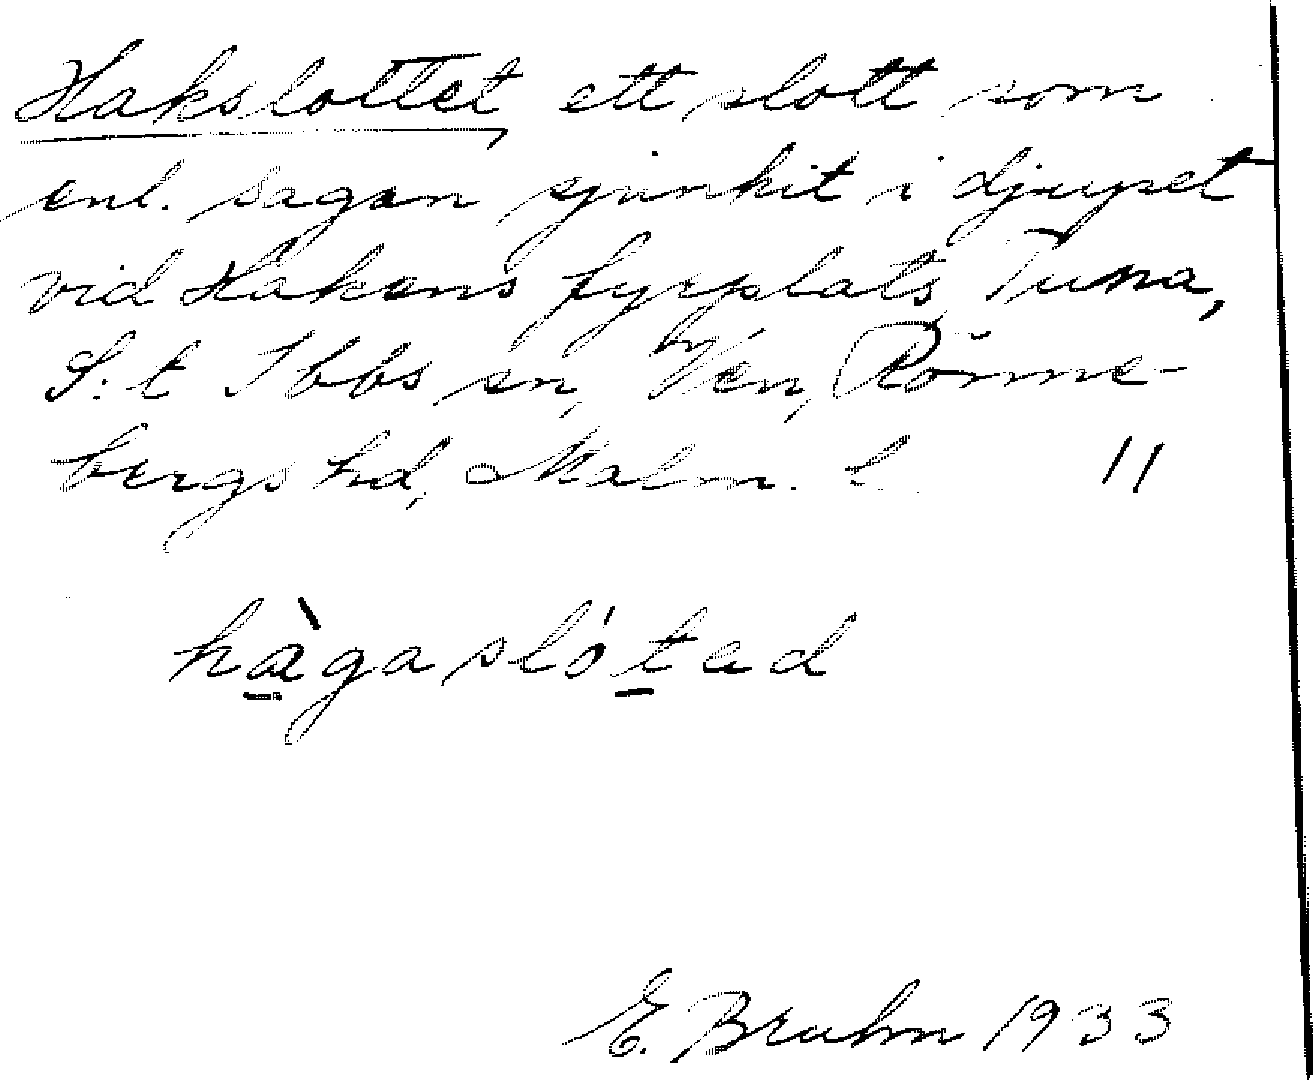 Hakslottet, ett slott som
enl. sagan sjunkit i djupet
vid Hakens fyrplats, Tuna,
S:t Ibbs sn, Ven, Rönne-
bergs hd, Malm. l. 11
hàgaslótad
E. Bruhn 1933